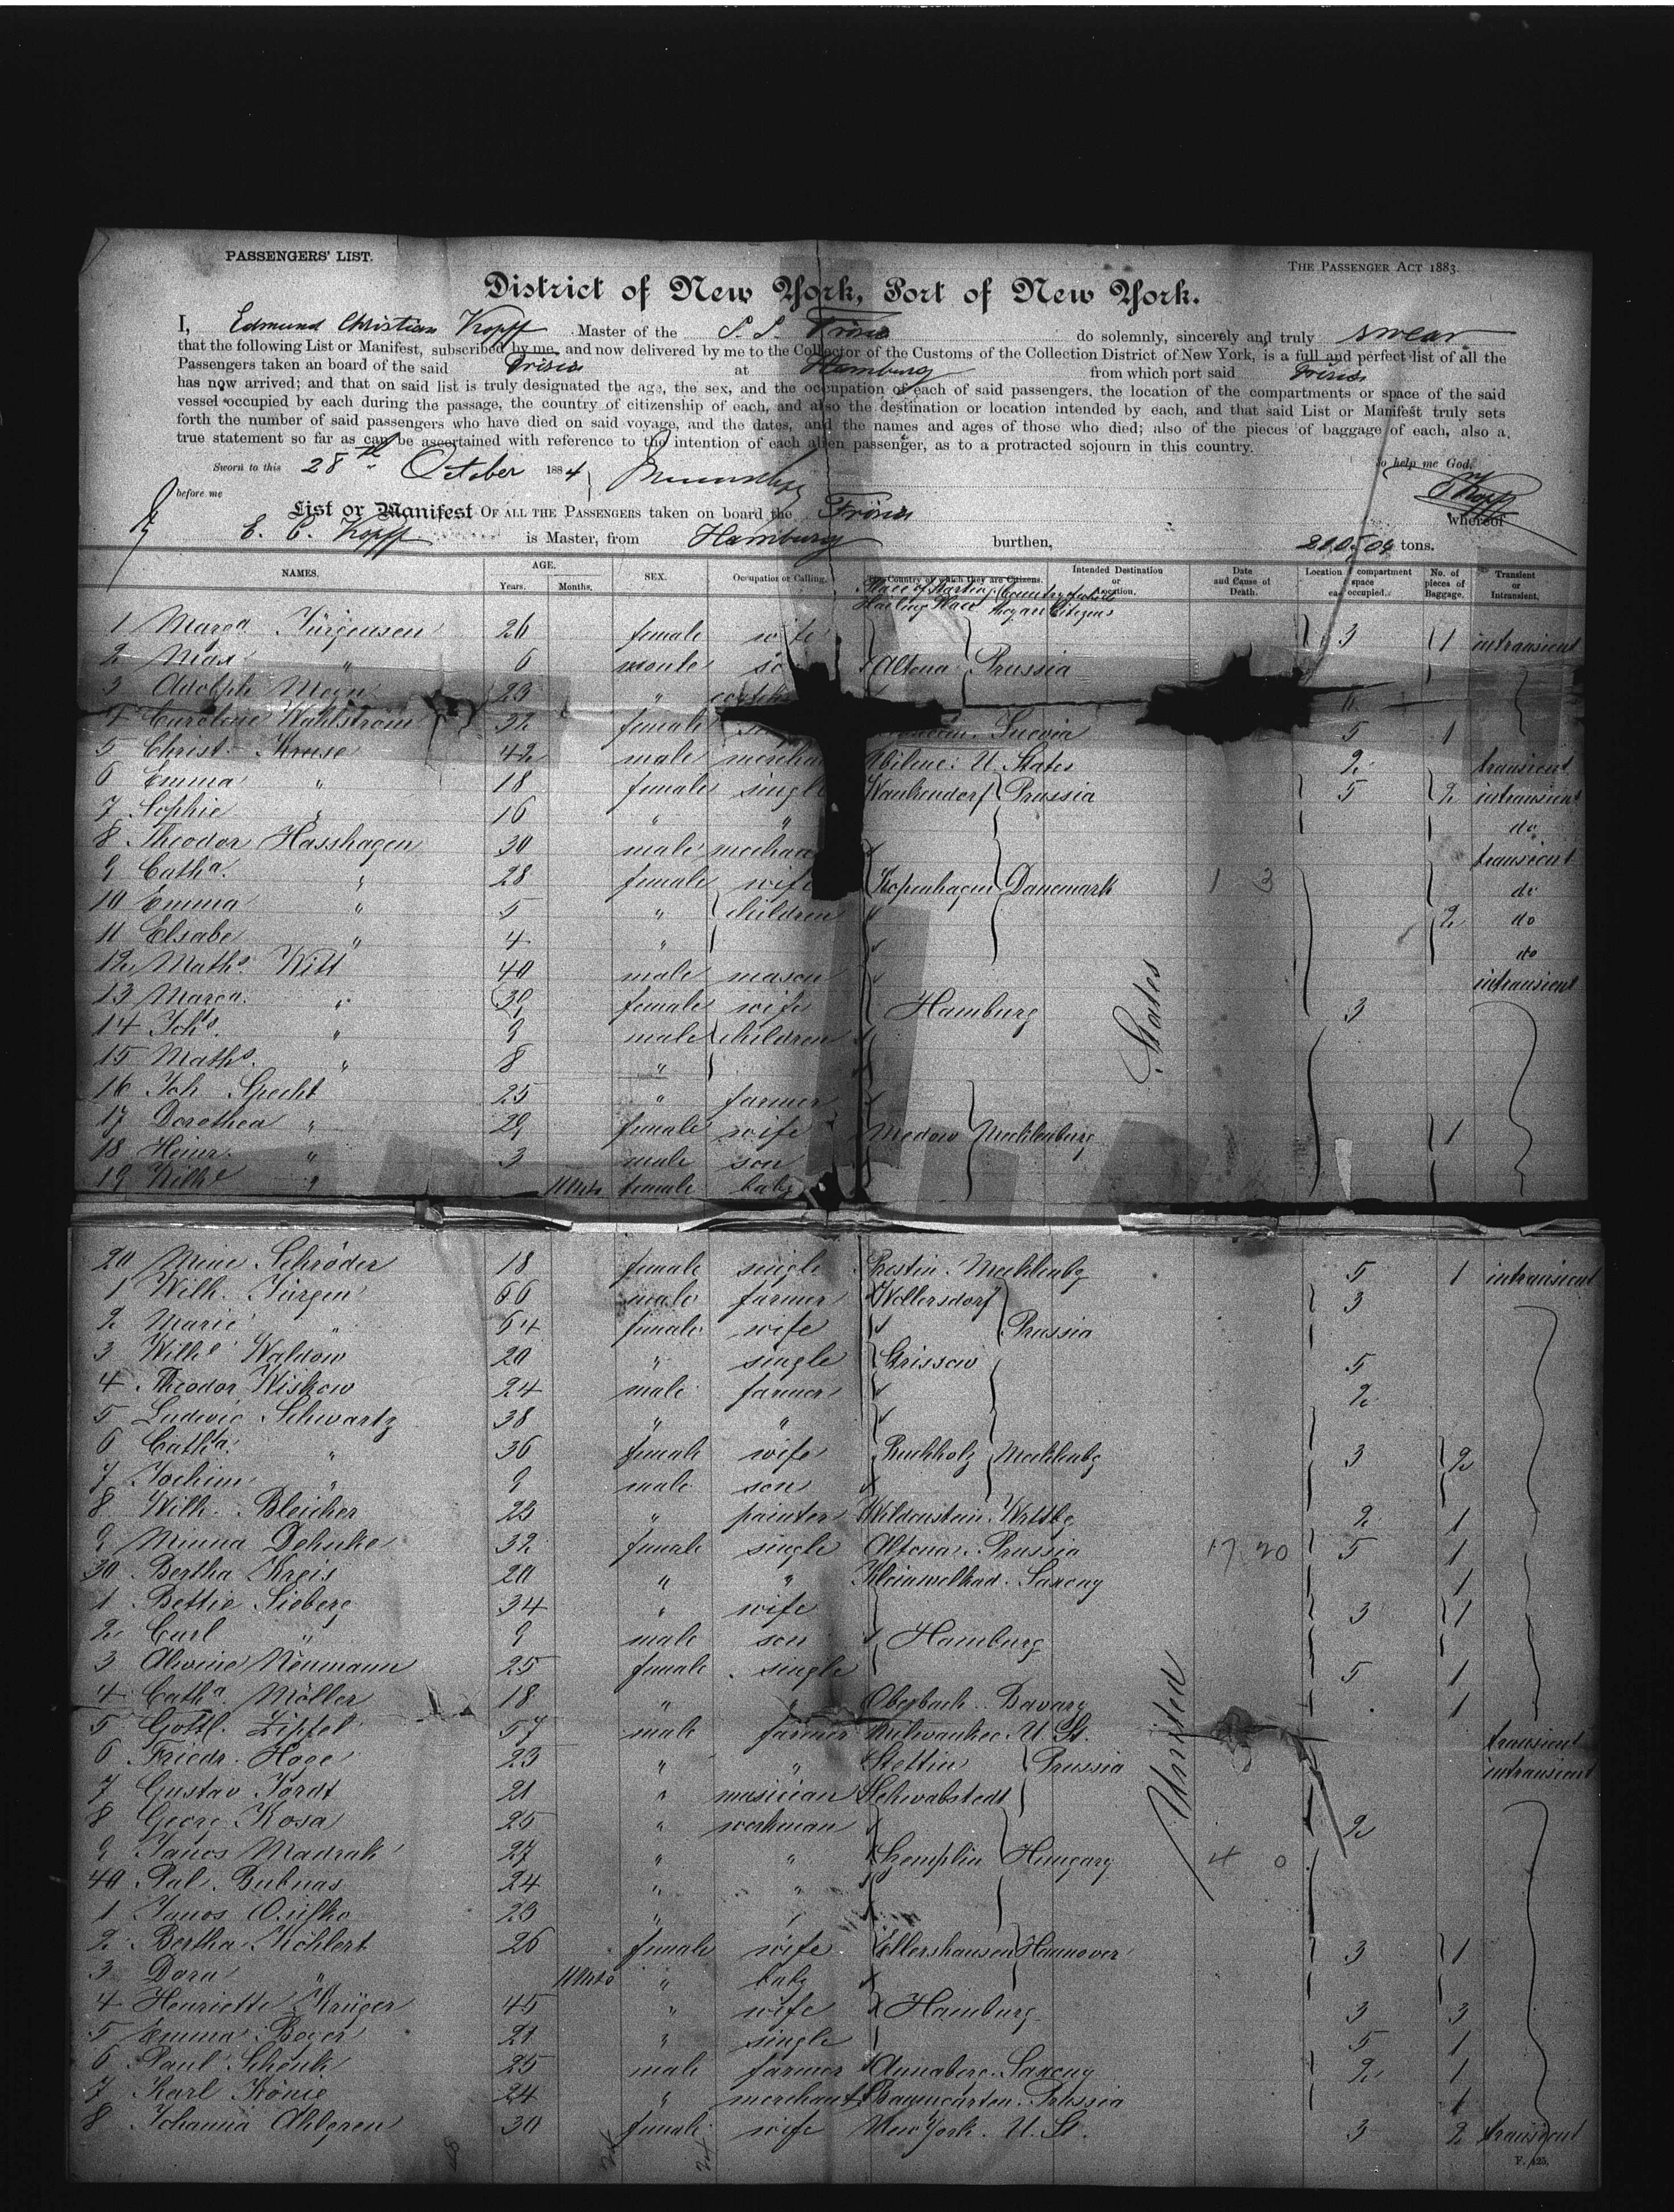 PASSENGERS' LIST.
THE PASSENGER ACT 1883.
District of New York, Port of New York.
I, Edmund Christian Kopff Master of the S. S. Frisia do solemnly, sincerely and truly swear
that the following List or Manifest, subscribed by me, and now delivered by me to the Collector of the Customs of the Collection District of New York, is a full and perfect list of all the
Passengers taken on board of the said Frisia at Hamburg from which port said Frisia
has now arrived; and that on said list is truly designated the age, the sex, and the occupation of each of said passengers, the location of the compartments or space of the said
vessel occupied by each during the passage, the country of citizenship of each, and also the destination or location intended by each, and that said List or Manifest truly sets
forth the number of said passengers who have died on said voyage, and the dates, and the names and ages of those who died; also of the pieces of baggage of each, also a
true statement so far as can be ascertained with reference to the intention of each alien passenger, as to a protracted sojourn in this country.
Sworn to this 28th October 1884 So help me God.
before me Kopff
List or Manifest OF ALL THE PASSENGERS taken on board the Frisia whereof
E. C. Kopff is Master, from Hamburg burthen, tons.
NAMES. AGE. Years. Months. SEX. Occupation or Calling. The Country of which they are Citizens. Intended Destination or Location. Date and Cause of Death. Location of compartment or space each occupied. No. of pieces of Baggage. Transient or Intransient.
Place of Starting Country of which
Hailing Place they are Citizens
1 Marga. Jürgensen 26 female wife 3 1 intransient
2 Max " 6 male Altona Prussia
3 Adolph Meyn 23 "
4 Caroline Wahlström 32 female Suecia 5 1
5 Christ. Kruse 42 male Abilene. U. States 2 transient
6 Emma " 18 female single Wankendorf Prussia 5 2 intransient
7 Sophie " 16 " " do
8 Theodor Hasshagen 30 male transient
9 Catha. " 28 female wife Kopenhagen Danemark 1 3 do
10 Emma " 5 " children 2 do
11 Elsabe " 4 " do
12 Maths. Witt 40 male mason intransient
13 Marga. " 39 female wife Hamburg 3
14 Johs. " 9 male children
15 Maths. " 8 "
16 Joh Specht 25 " farmer
17 Dorothea " 29 female wife Medow Mecklenburg 1
18 Heinr. " 3 male son
19 Wilhe " 11 Mts female baby
20 Mine Schröder 18 female single Mecklenbg 5 1 intransient
1 Wilh. Jürgen 66 male farmer Wollersdorf 3
2 Marie " 64 female wife Prussia
3 Wilhe Waldow 20 " single Grissow 5
4 Theodor Wiskow 24 male farmer 2
5 Ludwig Schwartz 38 " "
6 Catha. " 36 female wife Buchholz Mecklenbg 3 2
7 Jochim " 9 male son
8 Wilh. Bleicher 23 " painter Wildenstein. Wrttbg 2 1
9 Minna Dehnke 32 female single Altona. Prussia 17 20 5 1
30 Bertha Kreis 20 " " Saxony 1
1 Bettie Sieberg 34 " wife 3 1
2 Carl " 9 male son Hamburg
3 Alwine Neumann 25 female single 5 1
4 Catha. Möller 18 " " Oberbach. Bavary 1
5 Gottl. Zipfel 57 male farmer Milwaukee. U. St. transient
6 Friedr. Hoge 23 " " Stettin Prussia intransient
7 Gustav Jordt 21 " musician Schwabstedt
8 Georg Kosa 25 " workman 2
9 Janos Madrak 27 " " Zemplin Hungary 4 0
40 Pal Bubnas 24 " "
1 Janos 23 " "
2 Bertha Köhlert 26 female wife Ellershausen Hannover 3 1
3 Dora " 11 Mts " baby
4 Henriette Krüger 45 " wife Hamburg 3 3
5 Emma Beyer 21 " single 5 1
6 Paul Schenk 25 male farmer Annaberg. Saxony 2 1
7 Karl König 24 " merchant Baumgarten. Prussia 1
8 Johanna Ahlgren 30 female wife New York. U. St. 3 2 transient
United States
F. 425.